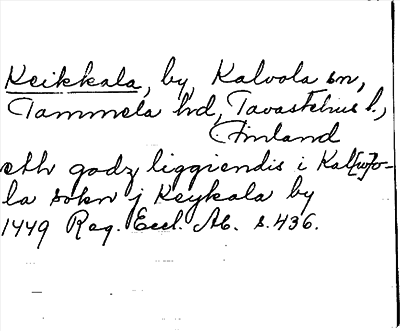 Keikkala, by, Kalvola sn,
Tammela hd, Tavastehus l.,
Finland
eth godz liggiendis i Kal[w]o-
la sokn j Keykala by
1449 Reg. Eccl. Ab. s. 436.